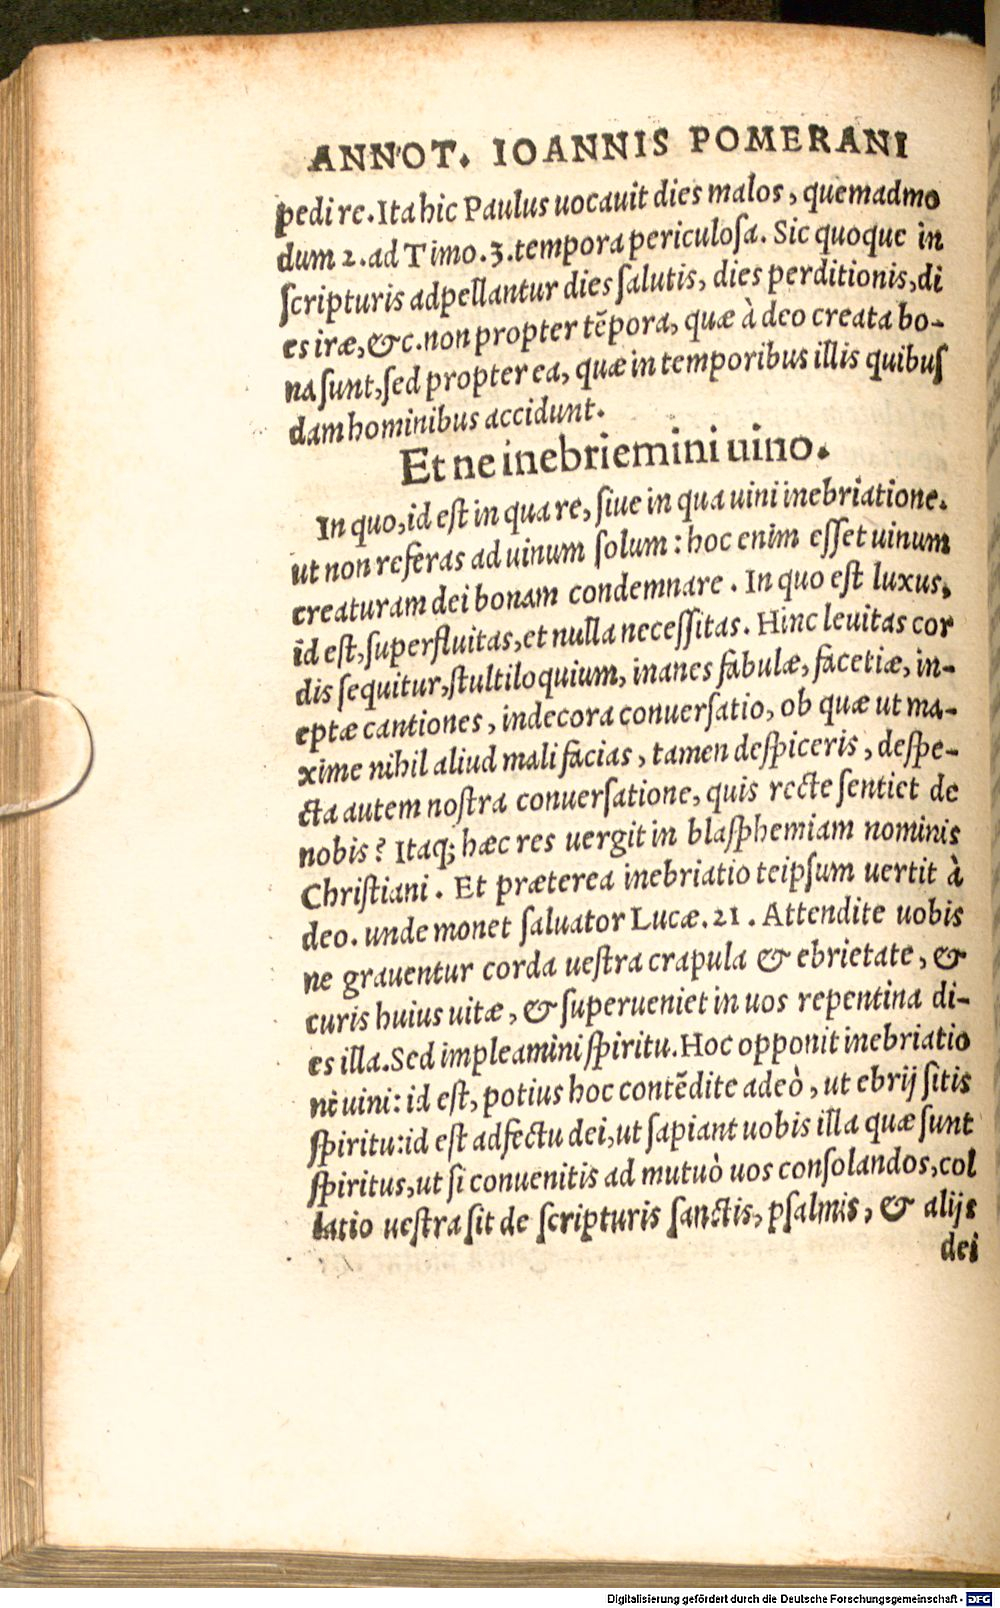 ANNOT. IOANNIS POMERANI
pedire. Ita hic Paulus uocauit dies malos, quemadmo
dum 2. ad Timo. 3. tempora periculoſa. Sic quoque in
ſcripturis adpellantur dies ſalutis, dies perditionis, di
es iræ, &c. non propter tẽpora, quæ à deo creata bo-
na ſunt, ſed propter ea, quæ in temporibus illis quibuſ
dam hominibus accidunt.
Et ne inebriemini uino.
In quo, id eſt in qua re, ſiue in qua uini inebriatione.
ut non referas ad uinum ſolum: hoc enim eſſet uinum
creaturam dei bonam condemnare. In quo eſt luxus,
id eſt, ſuperfluitas, et nulla neceſſitas. Hinc leuitas cor
dis ſequitur, ſtultiloquium, inanes fabulæ, facetiæ, in-
eptæ cantiones, indecora conuerſatio, ob quæ ut ma-
xime nihil aliud mali facias, tamen deſpiceris, deſpe-
cta autem noſtra conuerſatione, quis recte ſentiet de
nobis? Itaq; hæc res uergit in blaſphemiam nominis
Chriſtiani. Et præterea inebriatio teipſum uertit à
deo. unde monet ſaluator Lucæ. 21. Attendite uobis
ne grauentur corda ueſtra crapula & ebrietate, &
curis huius uitæ, & ſuperueniet in uos repentina di-
es illa. Sed impleamini ſpiritu. Hoc opponit inebriatio
ni uini: id eſt, potius hoc contẽdite adeò, ut ebrij ſitis
ſpiritu: id eſt adfectu dei, ut ſapiant uobis illa quæ ſunt
ſpiritus, ut ſi conuenitis ad mutuò uos conſolandos, col
latio ueſtra ſit de ſcripturis ſanctis, pſalmis, & alijs
dei
Digitalisierung gefördert durch die Deutsche Forschungsgemeinschaft - DFG